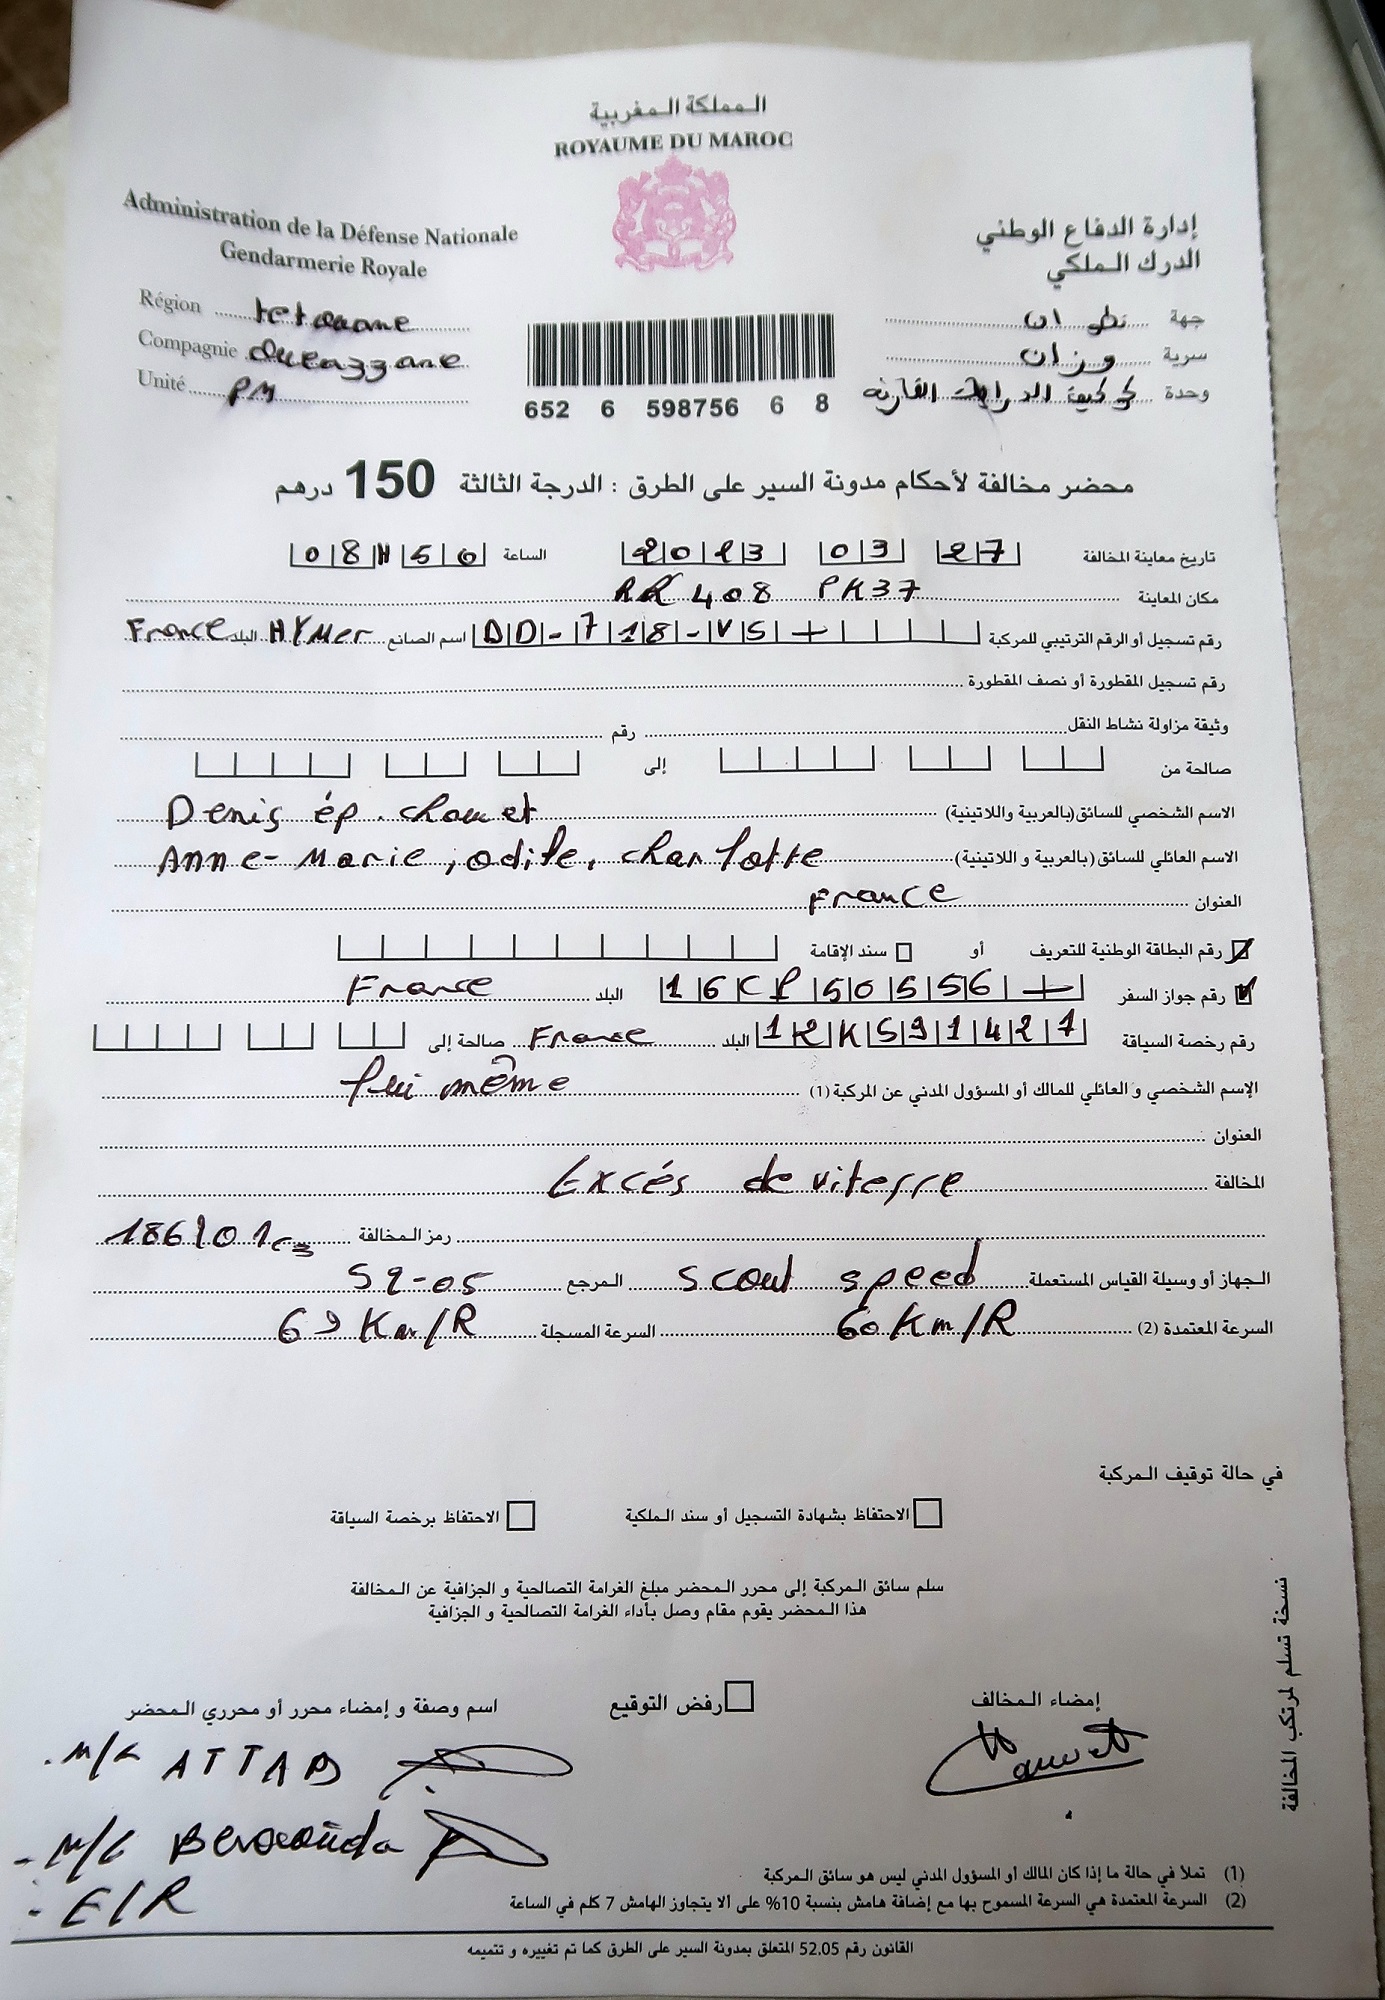 المملكة المغربية
ROYAUME DU MAROC
Administration de la Défense Nationale
Gendarmerie Royale
إدارة الدفاع الوطني
الدرك الملكي
Région tetouane
Compagnie Ouezzane
Unité PM
جهة تطوان
سرية وزان
وحدة كوكبة الدراجات النارية
652 6 598756 6 8
محضر مخالفة لأحكام مدونة السير على الطرق : الدرجة الثالثة 150 درهم
تاريخ معاينة المخالفة 27 03 2023 الساعة 08H50
مكان المعاينة RR 408 PK37
رقم تسجيل أو الرقم الترتيبي للمركبة DD-718-VS اسم الصانع HYMer البلد France
رقم تسجيل المقطورة أو نصف المقطورة
وثيقة مزاولة نشاط النقل رقم
صالحة من إلى
الاسم الشخصي للسائق (بالعربية واللاتينية) Denis ép. chauvet
الاسم العائلي للسائق (بالعربية و اللاتينية) Anne-Marie, odile, charlotte
العنوان France
رقم البطاقة الوطنية للتعريف أو سند الإقامة
رقم جواز السفر 16CP50556 البلد France
رقم رخصة السياقة 12KS91427 البلد France صالحة إلى
الإسم الشخصي و العائلي للمالك أو المسؤول المدني عن المركبة (1) lui même
العنوان
المخالفة Excés de vitesse
رمز المخالفة 186101c3
الجهاز أو وسيلة القياس المستعملة scout speed المرجع S9-05
السرعة المعتمدة (2) 60 Km/R السرعة المسجلة 69 Km/R
في حالة توقيف المركبة
الاحتفاظ بشهادة التسجيل أو سند الملكية الاحتفاظ برخصة السياقة
سلم سائق المركبة إلى محرر المحضر مبلغ الغرامة التصالحية و الجزافية عن المخالفة
هذا المحضر يقوم مقام وصل بأداء الغرامة التصالحية و الجزافية
نسخة تسلم لمرتكب المخالفة
إمضاء المخالف رفض التوقيع اسم وصفة و إمضاء محرر أو محرري المحضر
Chauvet
M/C ATTAB
- M/C
- E/R
(1) تملأ في حالة ما إذا كان المالك أو المسؤول المدني ليس هو سائق المركبة
(2) السرعة المعتمدة هي السرعة المسموح بها مع إضافة هامش بنسبة 10% على ألا يتجاوز الهامش 7 كلم في الساعة
القانون رقم 52.05 المتعلق بمدونة السير على الطرق كما تم تغييره و تتميمه